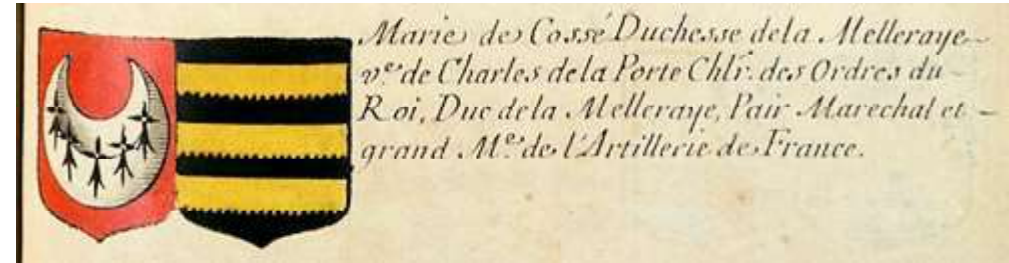 Marie de Cossé Duchesse dela Melleraye
v.e de Charles dela Porte Chlr. des Ordres du
Roi, Duc dela Melleraye, Pair Marechal et
grand M.e de l'Artillerie de France.